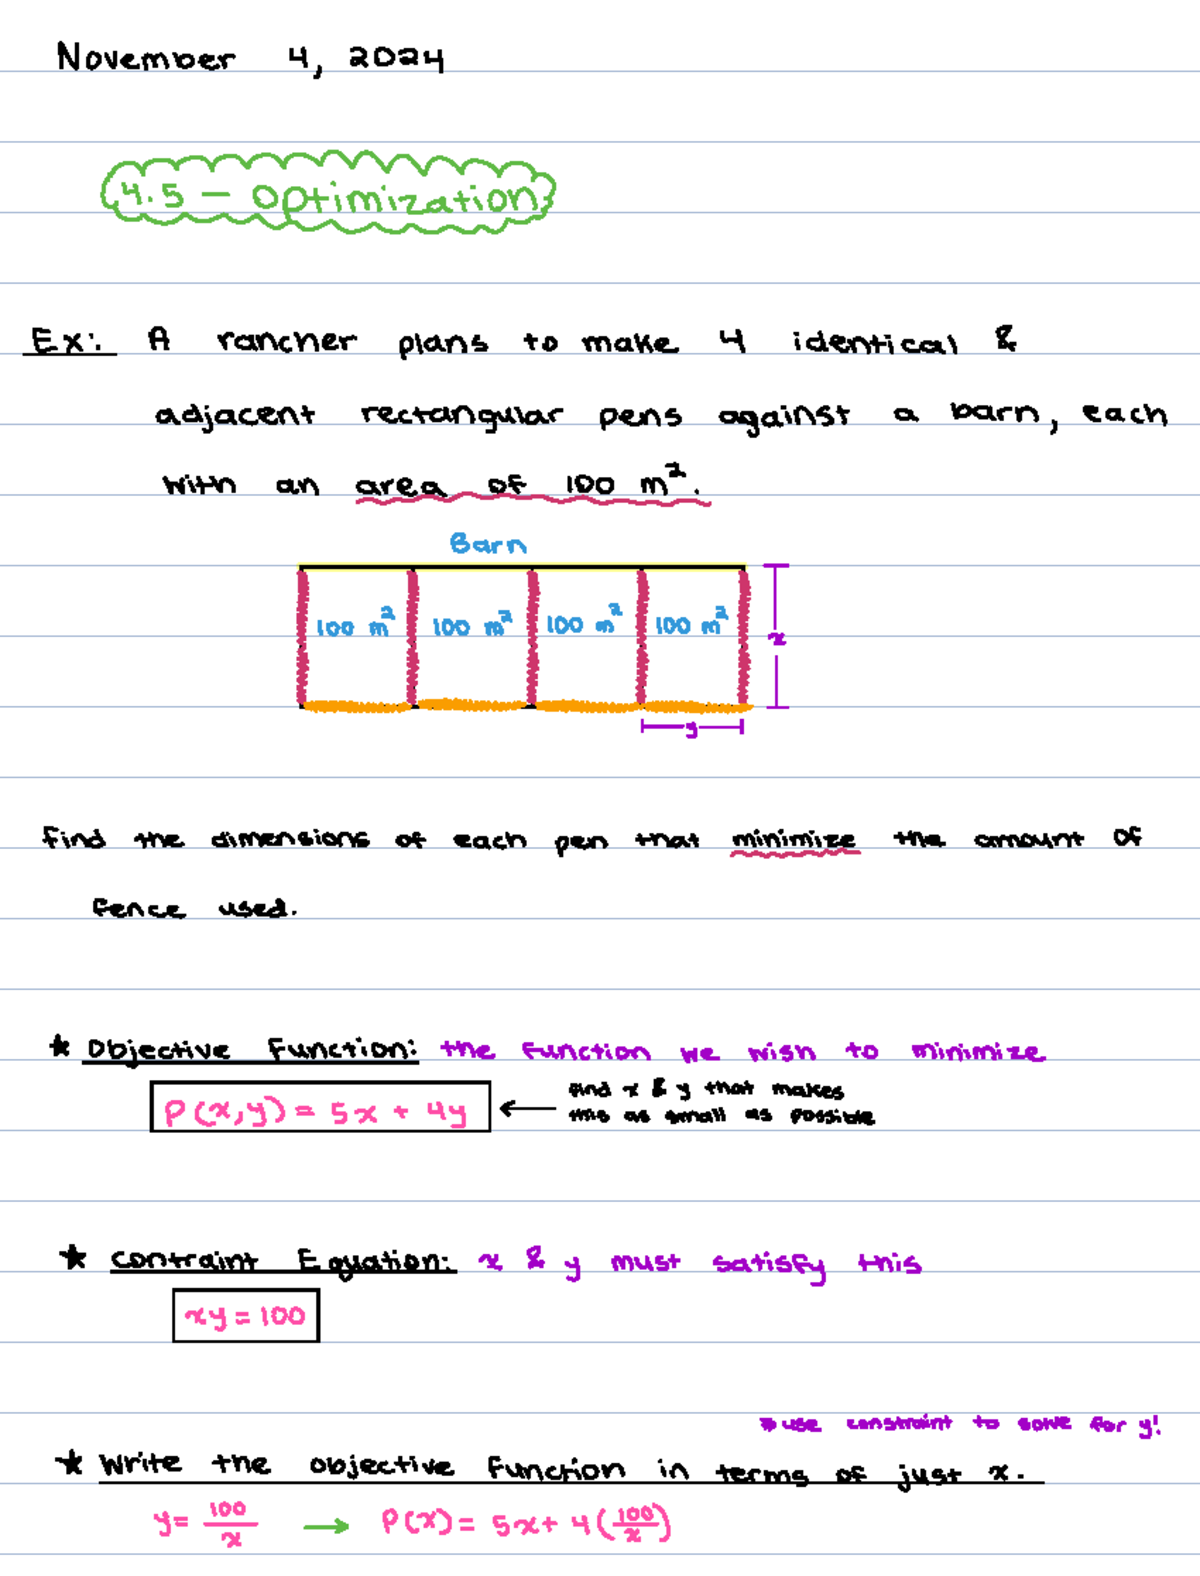 November 4, 2024
4.5 - Optimization
Ex: A rancher plans to make 4 identical &
adjacent rectangular pens against a barn, each
with an area of 100 m².
Barn
100 m² 100 m² 100 m² 100 m²
x
y
Find the dimensions of each pen that minimize the amount of
fence used.
* Objective Function: the function we wish to minimize
P(x,y) = 5x + 4y ← find x & y that makes
this as small as possible
* Contraint Equation: x & y must satisfy this
xy = 100
* use constraint to solve for y!
* Write the objective function in terms of just x.
y = 100/x → P(x) = 5x + 4(100/x)